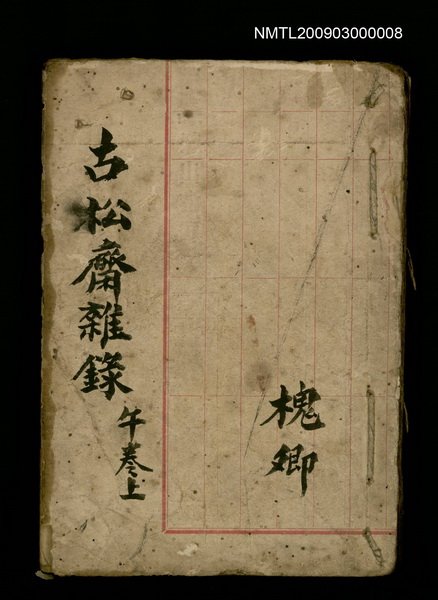 NMTL200903000008
古松齋雜錄
午卷上
槐卿